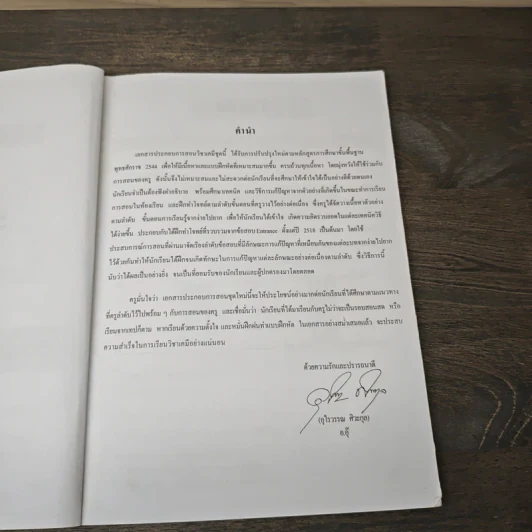 คำนำ
เอกสารประกอบการสอนวิชาเคมีชุดนี้ ได้รับการปรับปรุงใหม่ตามหลักสูตรการศึกษาขั้นพื้นฐาน
พุทธศักราช 2544 เพื่อให้มีเนื้อหาและแบบฝึกหัดที่เหมาะสมมากขึ้น ครบถ้วนทุกเนื้อหา โดยมุ่งหวังให้ใช้ร่วมกับ
การสอนของครู ดังนั้นจึงไม่เหมาะสมและไม่สะดวกต่อนักเรียนที่จะศึกษาให้เข้าใจได้เป็นอย่างดีด้วยตนเอง
นักเรียนจำเป็นต้องฟังคำอธิบาย พร้อมศึกษาเทคนิค และวิธีการแก้ปัญหาจากตัวอย่างที่เกิดขึ้นในขณะทำการเรียน
การสอนในห้องเรียน และฝึกทำโจทย์ตามลำดับขั้นตอนที่ครูวางไว้อย่างต่อเนื่อง ซึ่งครูได้จัดวางเนื้อหาตัวอย่าง
ตามลำดับ ขั้นตอนการเรียนรู้จากง่ายไปยาก เพื่อให้นักเรียนได้เข้าใจ เกิดความคิดรวบยอดในแต่ละเทคนิควิธี
ได้ง่ายขึ้น ประกอบกับได้ฝึกทำโจทย์ที่รวบรวมจากข้อสอบ Entrance ตั้งแต่ปี 2518 เป็นต้นมา โดยใช้
ประสบการณ์การสอนที่ผ่านมาจัดเรียงลำดับข้อสอบที่มีลักษณะการแก้ปัญหาที่เหมือนกันของแต่ละบทจากง่ายไปยาก
ไว้ด้วยกันทำให้นักเรียนได้ฝึกจนเกิดทักษะในการแก้ปัญหาแต่ละลักษณะอย่างต่อเนื่องตามลำดับ ซึ่งวิธีการนี้
นับว่าได้ผลเป็นอย่างยิ่ง จนเป็นที่ยอมรับของนักเรียนและผู้ปกครองมาโดยตลอด
ครูมั่นใจว่า เอกสารประกอบการสอนชุดใหม่นี้จะให้ประโยชน์อย่างมากต่อนักเรียนที่ได้ศึกษาตามแนวทาง
ที่ครูลำดับไว้ไปพร้อม ๆ กับการสอนของครู และเชื่อมั่นว่า นักเรียนที่ได้มาเรียนกับครูไม่ว่าจะเป็นรอบสอนสด หรือ
เรียนจากเทปก็ตาม หากเรียนด้วยความตั้งใจ และหมั่นฝึกฝนทำแบบฝึกหัด ในเอกสารอย่างสม่ำเสมอแล้ว จะประสบ
ความสำเร็จในการเรียนวิชาเคมีอย่างแน่นอน
ด้วยความรักและปรารถนาดี
(อุไรวรรณ ศิวะกุล)
อ.อุ๊